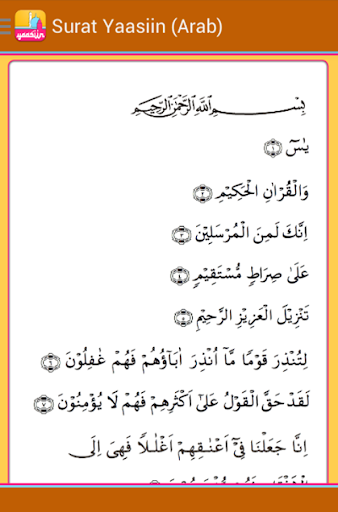 yaasiin
Surat Yaasiin (Arab)
بِسْمِ اللّٰهِ الرَّحْمٰنِ الرَّحِيْمِ
يٰسٓ ۝١
وَالْقُرْاٰنِ الْحَكِيْمِ ۝٢
اِنَّكَ لَمِنَ الْمُرْسَلِيْنَ ۝٣
عَلٰى صِرَاطٍ مُّسْتَقِيْمٍ ۝٤
تَنْزِيْلَ الْعَزِيْزِ الرَّحِيْمِ ۝٥
لِتُنْذِرَ قَوْمًا مَّآ اُنْذِرَ اٰبَاۤؤُهُمْ فَهُمْ غٰفِلُوْنَ ۝٦
لَقَدْ حَقَّ الْقَوْلُ عَلٰٓى اَكْثَرِهِمْ فَهُمْ لَا يُؤْمِنُوْنَ ۝٧
اِنَّا جَعَلْنَا فِيْٓ اَعْنَاقِهِمْ اَغْلٰلًا فَهِيَ اِلَى